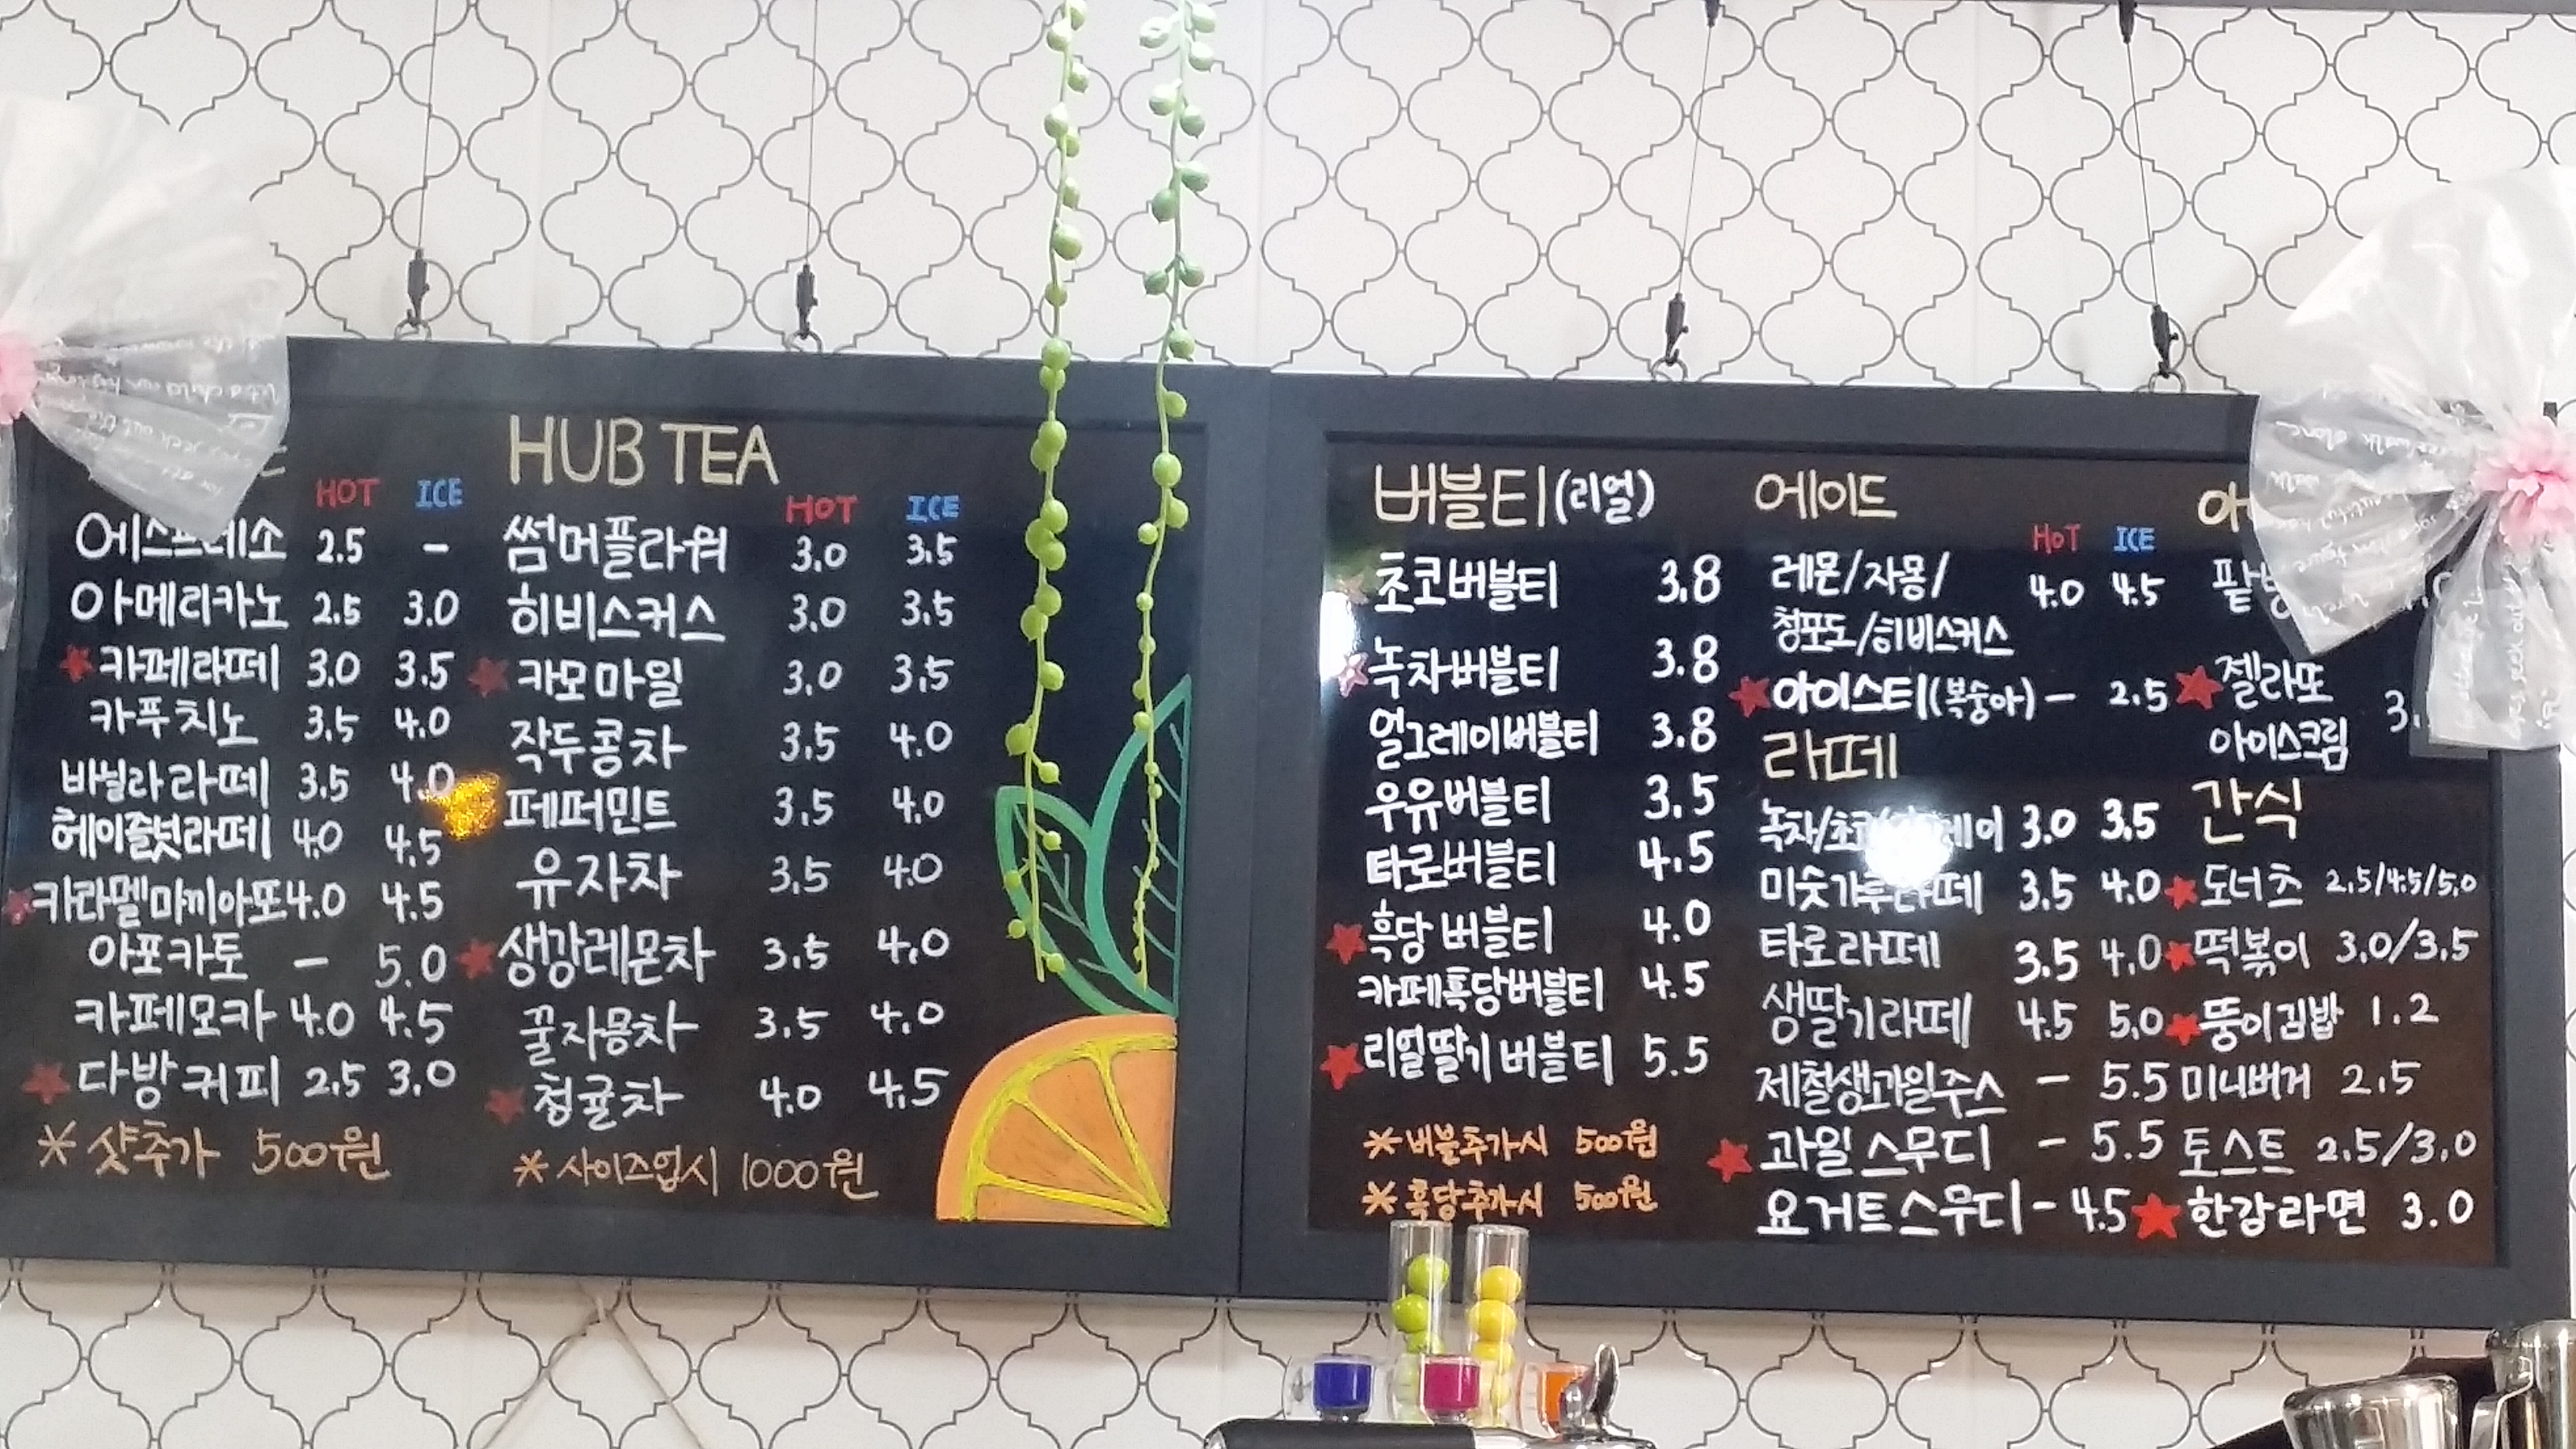 HOT ICE
에스프레소 2.5 -
아메리카노 2.5 3.0
카페라떼 3.0 3.5
카푸치노 3.5 4.0
바닐라라떼 3.5 4.0
헤이즐넛라떼 4.0 4.5
카라멜마끼아또 4.0 4.5
아포카토 - 5.0
카페모카 4.0 4.5
다방커피 2.5 3.0
* 샷추가 500원
HUB TEA
HOT ICE
썸머플라워 3.0 3.5
히비스커스 3.0 3.5
카모마일 3.0 3.5
작두콩차 3.5 4.0
페퍼민트 3.5 4.0
유자차 3.5 4.0
생강레몬차 3.5 4.0
꿀자몽차 3.5 4.0
청귤차 4.0 4.5
* 사이즈업시 1000원
버블티(리얼)
초코버블티 3.8
녹차버블티 3.8
얼그레이버블티 3.8
우유버블티 3.5
타로버블티 4.5
흑당버블티 4.0
카페흑당버블티 4.5
리얼딸기버블티 5.5
* 버블추가시 500원
* 흑당추가시 500원
에이드
HOT ICE
레몬/자몽/ 4.0 4.5
청포도/히비스커스
아이스티(복숭아) - 2.5
라떼
녹차/초코/ 3.0 3.5
미숫가루라떼 3.5 4.0
타로라떼 3.5 4.0
생딸기라떼 4.5 5.0
제철생과일주스 - 5.5
과일스무디 - 5.5
요거트스무디 - 4.5
젤라또
아이스크림
간식
도너츠 2.5/4.5/5.0
떡볶이 3.0/3.5
뚱이김밥 1.2
미니버거 2.5
토스트 2.5/3.0
한강라면 3.0